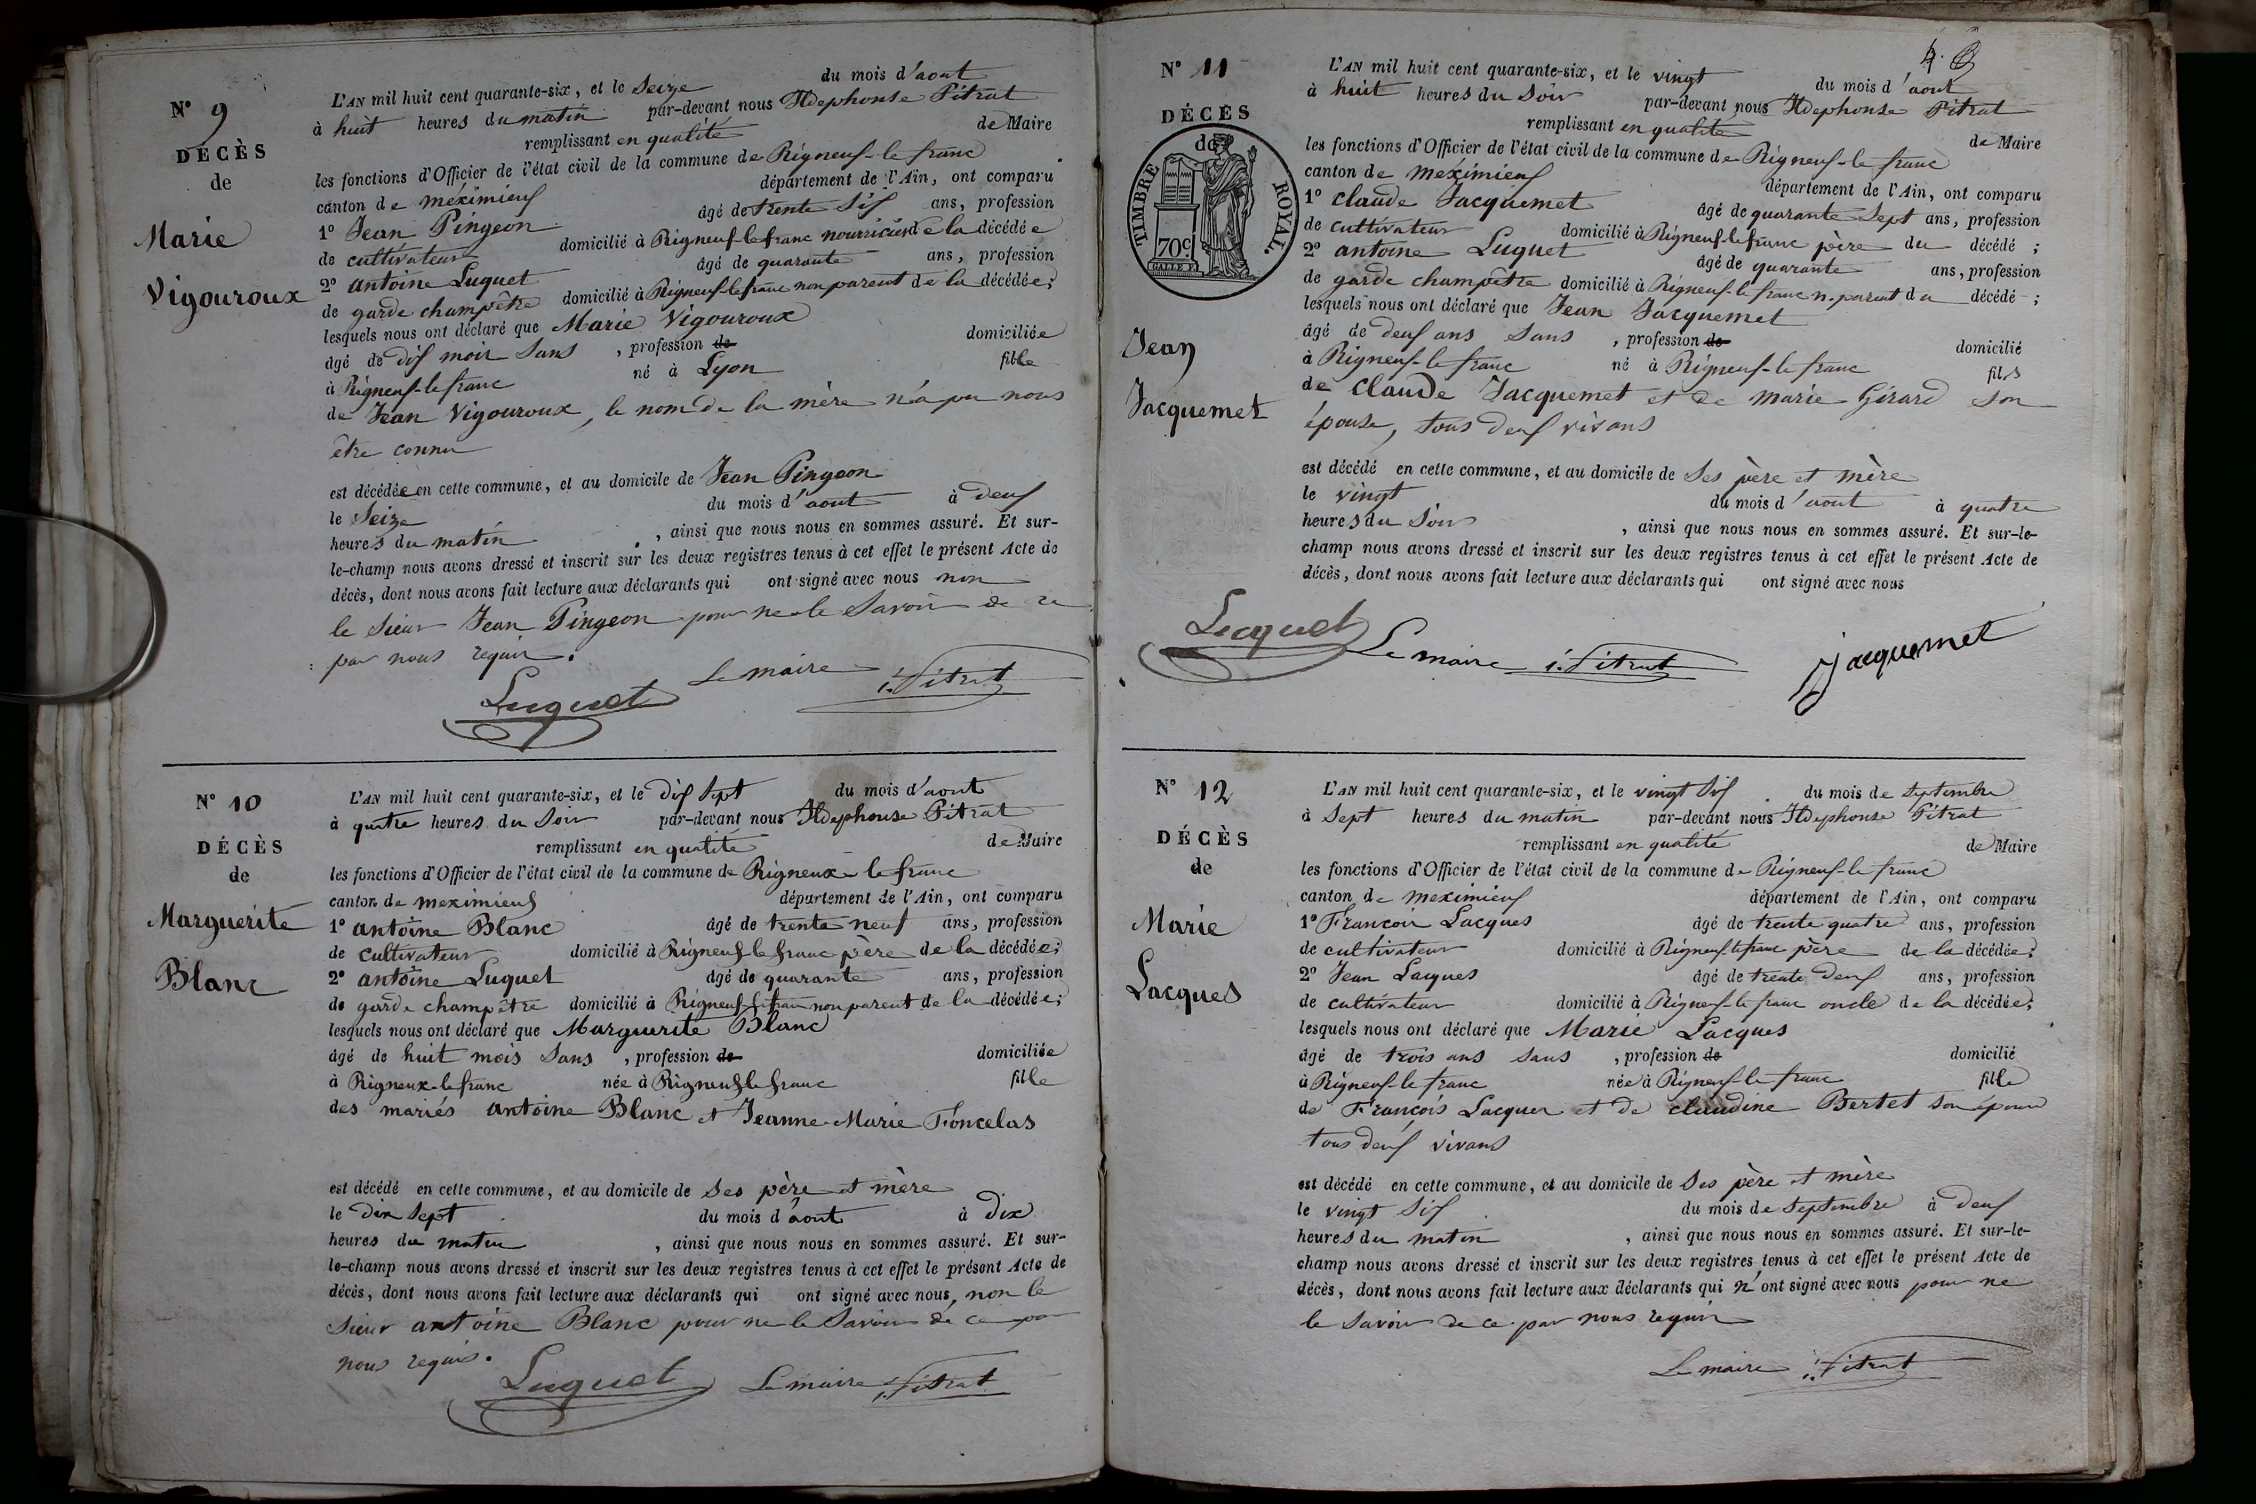 N° 9
DÉCÈS
de
Marie
Vigouroux
L'AN mil huit cent quarante-six, et le Seize du mois d'aout
à huit heures du matin par-devant nous Ildephonse Pitrat
remplissant en qualité de Maire
les fonctions d'Officier de l'état civil de la commune de Rigneux-le franc
canton de méximieux département de l'Ain, ont comparu
1° Jean Pingeon âgé de trente six ans, profession
de cultivateur domicilié à Rigneux-le franc nourricier de la décédée
2° antoine Luquet âgé de quarante ans, profession
de garde champêtre domicilié à Rigneux-le franc non parent de la décédée;
lesquels nous ont déclaré que Marie Vigouroux
âgé de dix mois Sans , profession de domiciliée
à Rigneux-le franc né à Lyon fille
de Jean Vigouroux, le nom de la mère n'a pu nous
être connu
est décédée en cette commune, et au domicile de Jean Pingeon
le Seize du mois d'aout à deux
heures du matin , ainsi que nous nous en sommes assuré. Et sur-
le-champ nous avons dressé et inscrit sur les deux registres tenus à cet effet le présent Acte de
décès, dont nous avons fait lecture aux déclarants qui ont signé avec nous non
le Sieur Jean Pingeon pour ne le Savoir de ce
par nous requis.
Luquet Le maire i. Pitrat
N° 10
DÉCÈS
de
Marguerite
Blanc
L'AN mil huit cent quarante-six, et le dix Sept du mois d'aout
à quatre heures du Soir par-devant nous Ildephonse Pitrat
remplissant en qualité de Maire
les fonctions d'Officier de l'état civil de la commune de Rigneux le franc
canton de meximieux département de l'Ain, ont comparu
1° antoine Blanc âgé de trente neuf ans, profession
de cultivateur domicilié à Rigneux le franc père de la décédée;
2° antoine Luquet âgé de quarante ans, profession
de garde champêtre domicilié à Rigneux-le franc non parent de la décédée;
lesquels nous ont déclaré que Marguerite Blanc
âgé de huit mois Sans , profession de domiciliée
à Rigneux-le franc née à Rigneux le franc fille
des mariés antoine Blanc et Jeanne Marie Foncelas
est décédé en cette commune, et au domicile de Ses père et mère
le dix Sept du mois d'aout à dix
heures du matin , ainsi que nous nous en sommes assuré. Et sur-
le-champ nous avons dressé et inscrit sur les deux registres tenus à cet effet le présent Acte de
décès, dont nous avons fait lecture aux déclarants qui ont signé avec nous, non le
Sieur antoine Blanc pour ne le Savoir de ce par
nous requis.
Luquet Le maire i. Pitrat
N° 11
DÉCÈS
de
TIMBRE ROYAL.
70c.
Jean
Jacquemet
L'AN mil huit cent quarante-six, et le vingt du mois d'aout
à huit heures du Soir par-devant nous Ildephonse Pitrat
remplissant en qualité de Maire
les fonctions d'Officier de l'état civil de la commune de Rigneux-le franc
canton de meximieux département de l'Ain, ont comparu
1° claude Jacquemet âgé de quarante Sept ans, profession
de cultivateur domicilié à Rigneux-le franc père du décédé ;
2° antoine Luquet âgé de quarante ans, profession
de garde champêtre domicilié à Rigneux-le franc n. parent du décédé ;
lesquels nous ont déclaré que Jean Jacquemet
âgé de deux ans Sans , profession de domicilié
à Rigneux-le franc né à Rigneux-le franc fils
de claude Jacquemet et de marie Girard Son
épouse, tous deux vivans
est décédé en cette commune, et au domicile de Ses père et mère
le vingt du mois d'aout à quatre
heures du Soir , ainsi que nous nous en sommes assuré. Et sur-le-
champ nous avons dressé et inscrit sur les deux registres tenus à cet effet le présent Acte de
décès, dont nous avons fait lecture aux déclarants qui ont signé avec nous
Luquet Le maire i. Pitrat Jacquemet
N° 12
DÉCÈS
de
Marie
Lacques
L'AN mil huit cent quarante-six, et le vingt Six du mois de Septembre
à Sept heures du matin par-devant nous Ildephonse Pitrat
remplissant en qualité de Maire
les fonctions d'Officier de l'état civil de la commune de Rigneux-le franc
canton de meximieux département de l'Ain, ont comparu
1° François Lacques âgé de trente quatre ans, profession
de cultivateur domicilié à Rigneux-le franc père de la décédée;
2° Jean Lacques âgé de trente deux ans, profession
de cultivateur domicilié à Rigneux-le franc oncle de la décédée;
lesquels nous ont déclaré que Marie Lacques
âgé de trois ans sans , profession de domicilié
à Rigneux-le franc née à Rigneux-le franc fille
de François Lacques et de claudine Bertet son épouse
tous deux vivans
est décédé en cette commune, et au domicile de Ses père et mère
le vingt Six du mois de Septembre à deux
heures du matin , ainsi que nous nous en sommes assuré. Et sur-le-
champ nous avons dressé et inscrit sur les deux registres tenus à cet effet le présent Acte de
décès, dont nous avons fait lecture aux déclarants qui n'ont signé avec nous pour ne
le Savoir de ce par nous requis
Le maire i. Pitrat